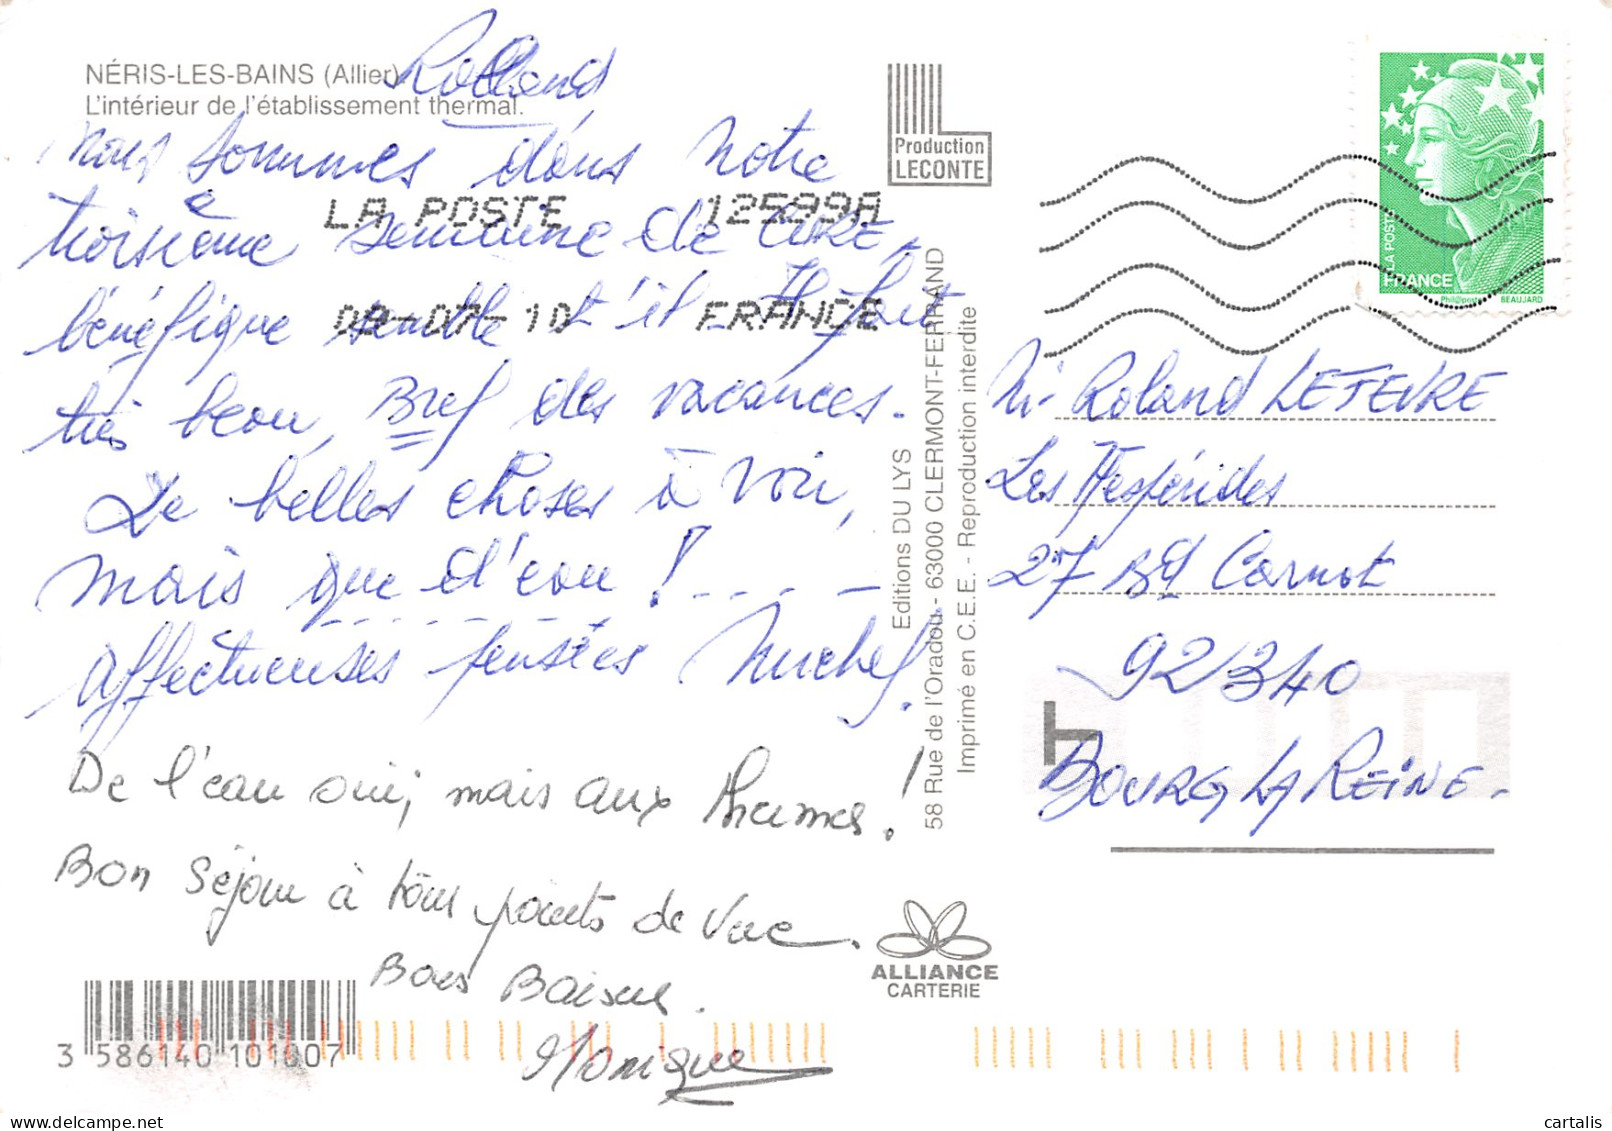 NÉRIS-LES-BAINS (Allier)
L'intérieur de l'établissement thermal.
Rolland
Nous sommes dans notre
troisième semaine de CURE,
bénéfique semble t'il - Il fait
très beau, Bref des vacances.
De belles choses à voir,
mais que d'eau ! - - - -
affectueuses pensées Michel.
De l'eau oui, mais aux Thermes !
Bon séjour à tous points de vue.
Bons Baisers.
Monique
3 586140 101007
LA POSTE 12599A
08-07-10 FRANCE
Production
LECONTE
Editions DU LYS
58 Rue de l'Oradou - 63000 CLERMONT-FERRAND
Imprimé en C.E.E. - Reproduction interdite
ALLIANCE
CARTERIE
LA POSTE
FRANCE
Phil@poste
BEAUJARD
Mr Roland LEFEVRE
Les Hespérides
27 Bd Carnot
92340
BOURG LA REINE.
cartalis